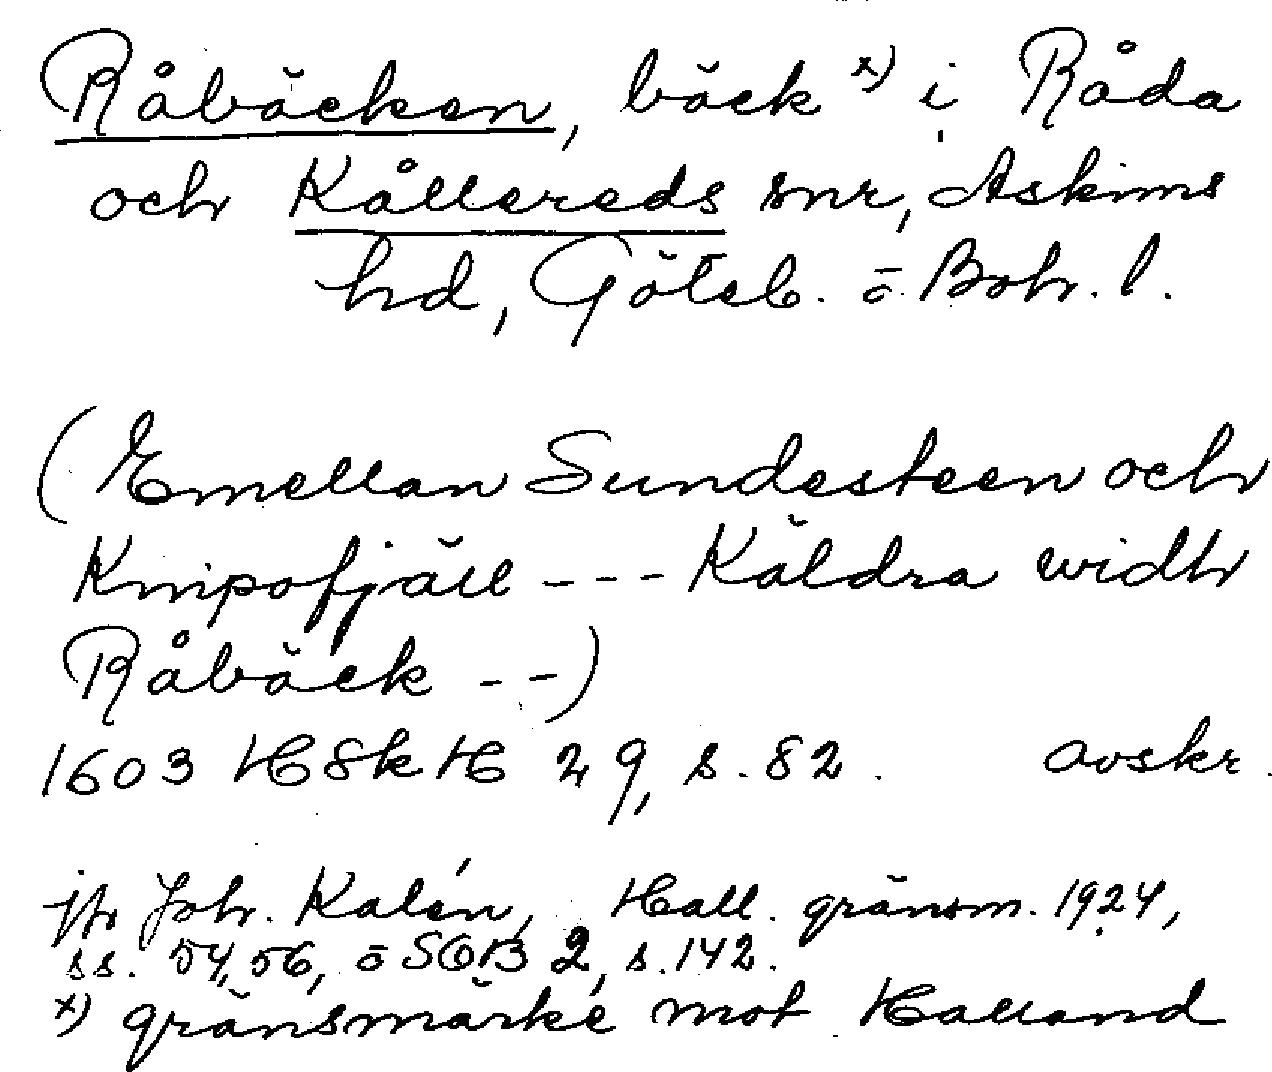 Råbäcken, bäck x) i Råda
och Kållereds snr, Askims
hd, Göteb. o. Boh. l.
(Emellan Sundesteen och
Knipofjäll --- Käldra widh
Råbäck --)
1603 HSkH 29, s. 82. avskr.
jfr Joh. Kalén, Hall. gränsm. 1924,
ss. 54, 56, o SOB 2, s. 142.
x) gränsmärke mot Halland